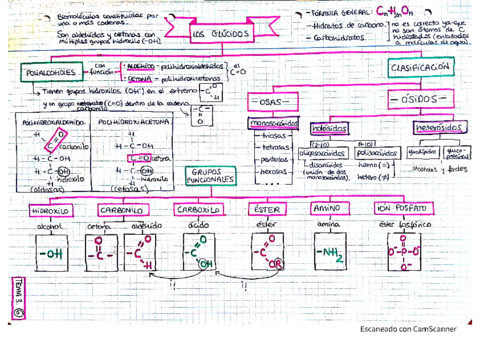 Biomoléculas constituidas por
una o más cadenas.
Son aldehídos y cetonas con
múltiples grupos hidroxilo (-OH).
LOS GLÚCIDOS
- FÓRMULA GENERAL: CnH2nOn
- Hidratos de carbono
- Carbohidratos
no es correcto ya que
no son átomos de C
hidratados (enlazados
a moléculas de agua).
POLIALCOHOLES
con función
· ALDEHÍDO - polihidroxialdehídos
· CETONA - polihidroxicetonas
el C=O
CLASIFICACIÓN
Tienen grupos hidroxilo (OH-) en el extremo
y un grupo carbonilo (C=O) dentro de la cadena
- OSAS -
- ÓSIDOS -
monosacáridos
- triosas
- tetrosas
- pentosas
- hexosas
holósidos
heterósidos
oligosacáridos
disacáridos
(unión de dos
monosacáridos)
polisacáridos
homo (=)
hetero (≠)
POLIHIDROXIALDEHÍDO
POLIHIDROXIACETONA
H
C=O
carbonilo
H-C-OH
H-C-OH
hidroxilo
H
(aldosas)
H
H-C-OH
C=O
H-C-OH
hidroxilo
H
(cetosas)
GRUPOS
FUNCIONALES
HIDROXILO
CARBONILO
CARBOXILO
ÉSTER
AMINO
IÓN FOSFATO
alcohol
cetona
aldehído
ácido
éster
amina
éster fosfórico
-OH
O
-C-
O
-C
H
O
-C
OH
O
-C
OR
-NH2
O-
O-P-O-
O-
TEMA 3.
Escaneado con CamScanner